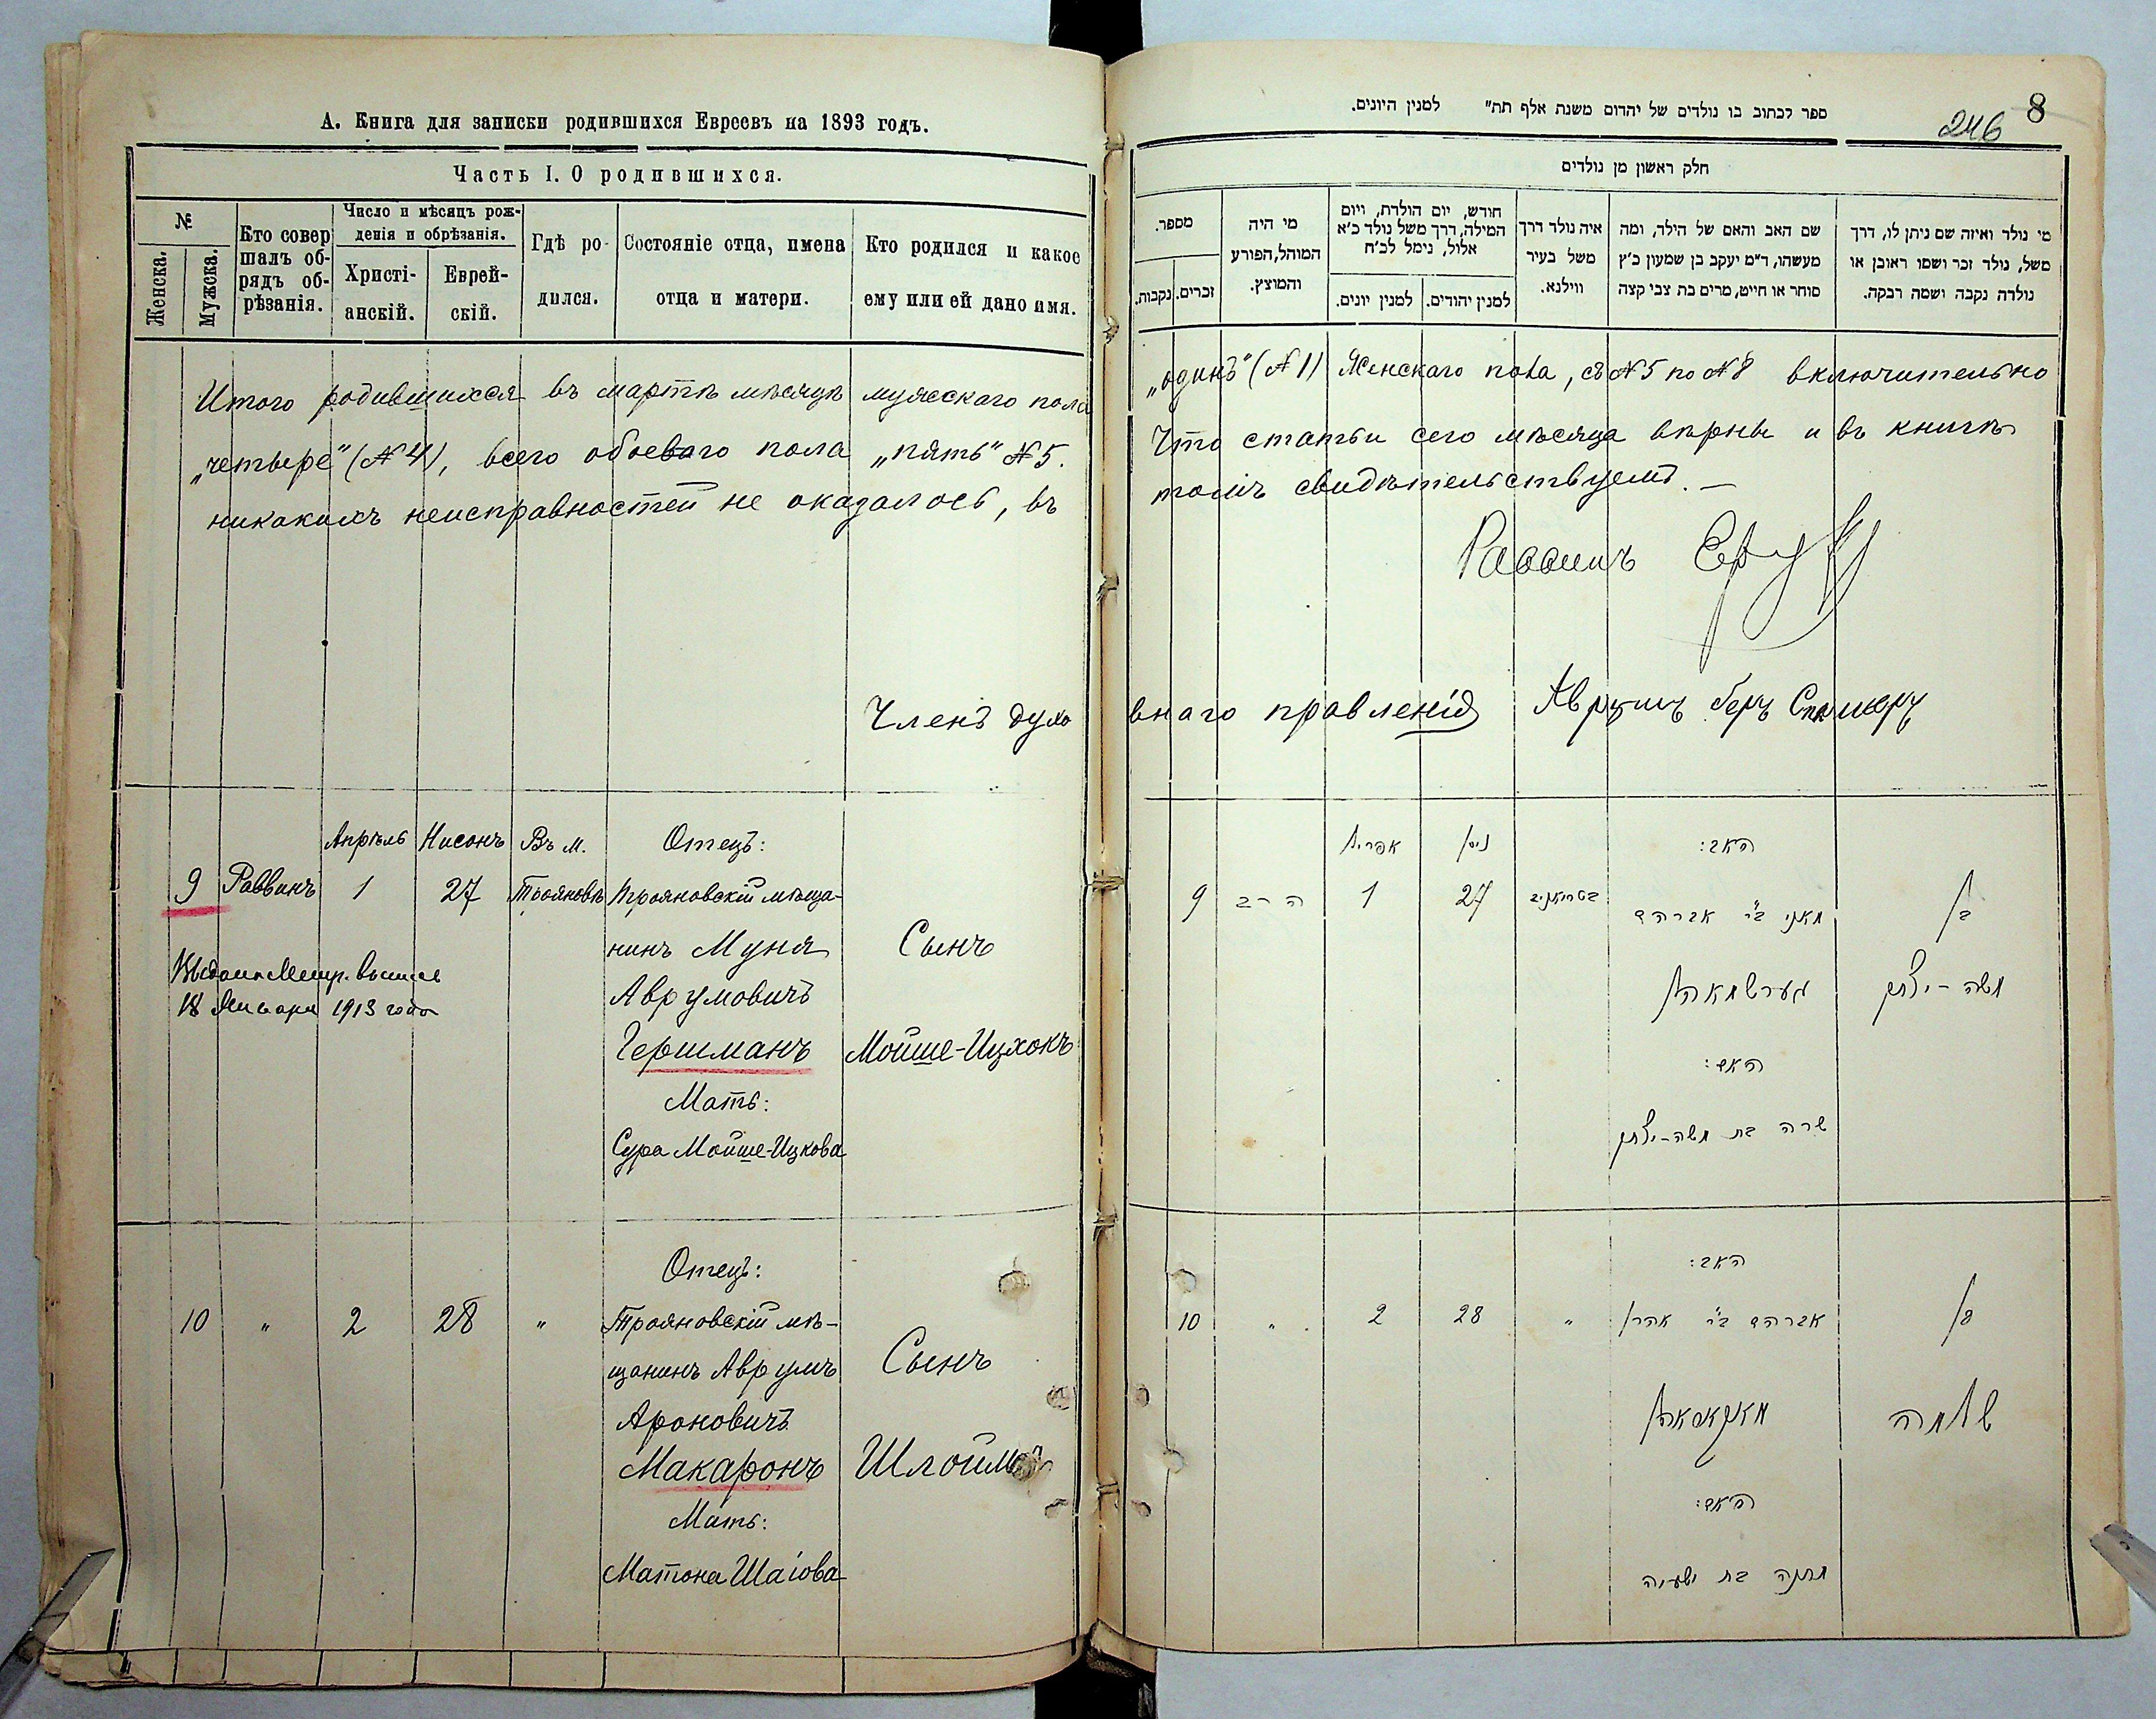 А. Книга для записки родившихся Евреевъ на 1893 годъ.
Часть I. О родившихся.
№
Женска.
Мужска.
Кто совершалъ обрядъ обрѣзанія.
Число и мѣсяцъ рожденія и обрѣзанія.
Христіанскій.
Еврейскій.
Гдѣ родился.
Состояніе отца, имена отца и матери.
Кто родился и какое ему или ей дано имя.
Итого родившихся въ мартѣ мѣсяцѣ мужскаго пола
„четыре" (№ 4), всего обоеваго пола „пять" № 5.
никакихъ неисправностей не оказалось, въ
Членъ духо
Апрѣль Нисонъ Въ м. Отецъ:
9 Раввинъ 1 27 Трояновѣ Трояновскій мѣща-
нинъ Муня
Аврумовичъ
Гершманъ
Мать:
Сура Мойше-Ицкова
Сынъ
Мойше-Ицхокъ
18 Января 1913 года
Отецъ:
10 " 2 28 " Трояновскій мѣ-
щанинъ Аврумъ
Ароновичъ
Макаронъ
Мать:
Матона Шаіова
Сынъ
8
246
ספר לכתוב בו נולדים של יהדום משנת אלף תת״ למנין היונים.
חלק ראשון מן נולדים
מספר.
נקבות.
זכרים.
מי היה המוהל, הפורע והמוצץ.
חודש, יום הולדת, ויום
המילה, דרך משל נולד כ׳א
אלול, נימל לב׳ח
למנין יונים.
למנין יהודים.
איה נולד דרך
משל בעיר
ווילנא.
שם האב והאם של הילד, ומה
מעשהו, ד״מ יעקב בן שמעון כ׳ץ
סוחר או חייט, מרים בת צבי קצה
מי נולד ואיזה שם ניתן לו, דרך
משל, נולד זכר ושמו ראובן או
נולדה נקבה ושמה רבקה.
„одинъ" (№ 1) Женскаго пола, съ № 5 по № 8 включительно
Что статьи сего мѣсяца вѣрны и въ книгѣ
томъ свидѣтельствуемъ. —
Раввинъ
внаго правленія Аврумъ беръ
אפריל ניסן האב:
9 הרב 1 27 מאני ב״ר אברהם בן
משה-יצחק
האם:
שרה בת משה-יצחק
האב:
10 " 2 28 " אברהם ב״ר אהרן בן
שלמה
האם:
מתנה בת ישעיה